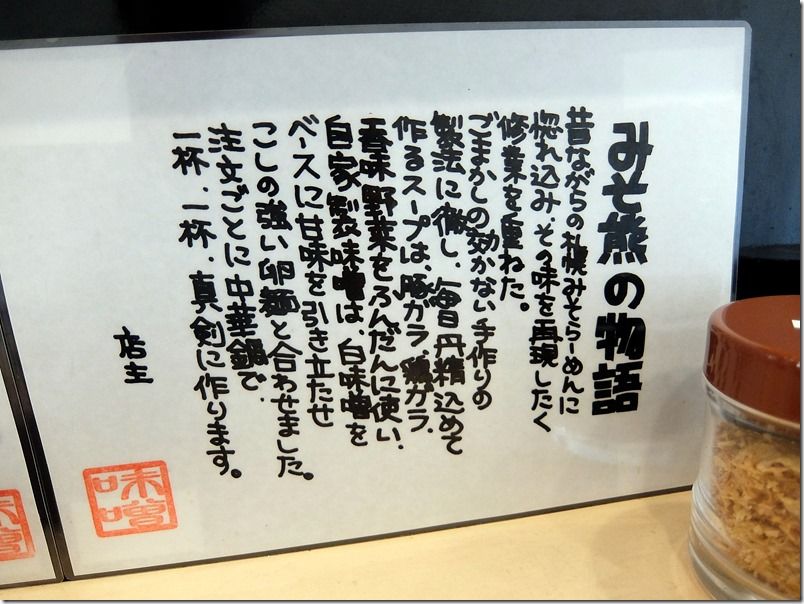 みそ熊の物語
昔ながらの札幌みそらーめんに
惚れ込み、その味を再現したく
修業を重ねた。
ごまかしの効かない手作りの
製法に徹し、毎日丹精込めて
作るスープは、豚ガラ、鶏ガラ、
香味野菜をふんだんに使い、
自家製味噌は、白味噌を
ベースに甘味を引き立たせ
こしの強い卵麺と合わせました。
注文ごとに中華鍋で、
一杯、一杯、真剣に作ります。
店主
味噌